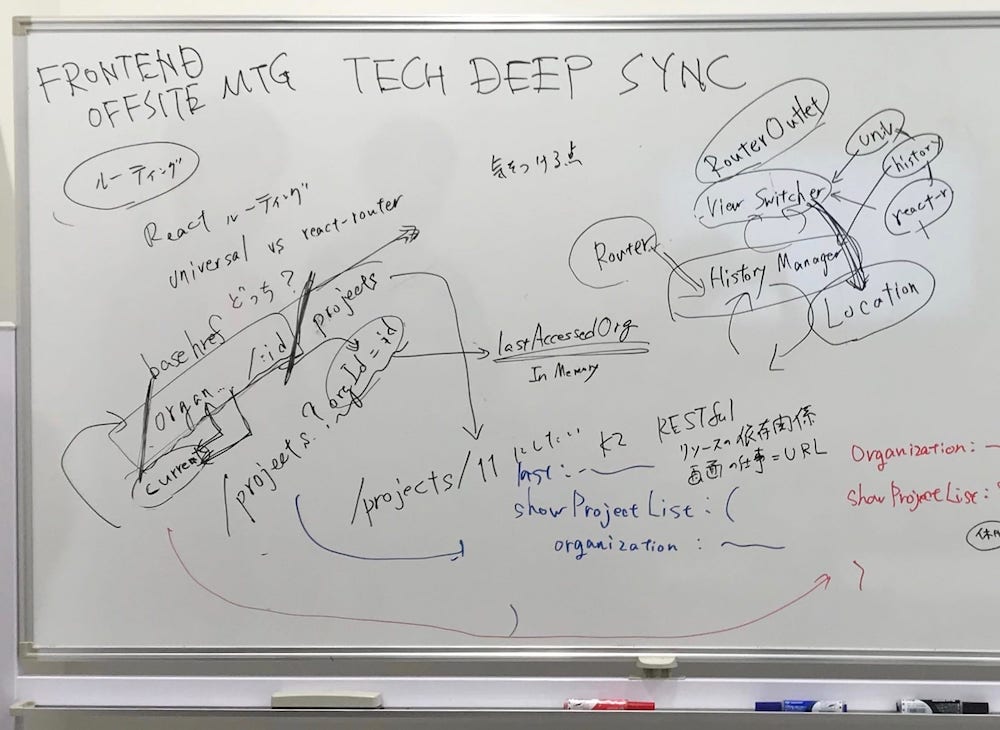 FRONTEND
OFFSITE MTG TECH DEEP SYNC
ルーティング
React ルーティング
universal vs react-router
どっち?
気をつける点
RouterOutlet
View Switcher
univ.
history
react-r
Router
History Manager
Location
base href
organ... /:id
projects
current
/projects?
orgId=:id
lastAccessedOrg
In Memory
/projects/11
にしたい
RESTful
リソースの依存関係
画面の仕事=URL
last:
showProjectList: (
organization:
)
Organization:
showProjectList:
)